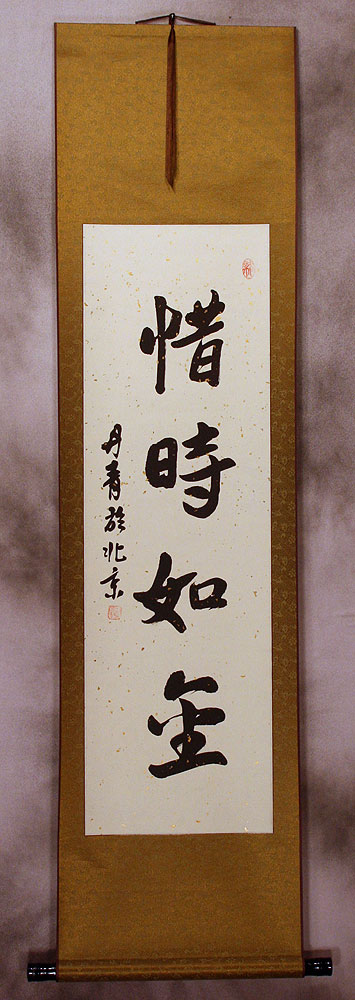 惜時如金
丹青於北京